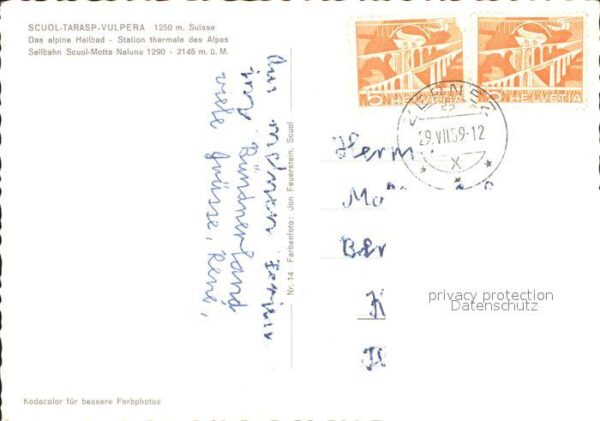 SCUOL-TARASP-VULPERA 1250 m. Suisse
Das alpine Heilbad - Station thermale des Alpes
Seilbahn Scuol-Motta Naluns 1290 - 2145 m. ü. M.
Aus meinen Ferien
im
Bündnerland
viele Grüsse, René,
Nr. 14 Farbenfoto: Jon Feuerstein, Scuol
5 HELVETIA
5 HELVETIA
ZERNEZ
29.VII.59-12
X
Herm
Ma
Ber
K
privacy protection
Datenschutz
Kodacolor für bessere Farbphotos